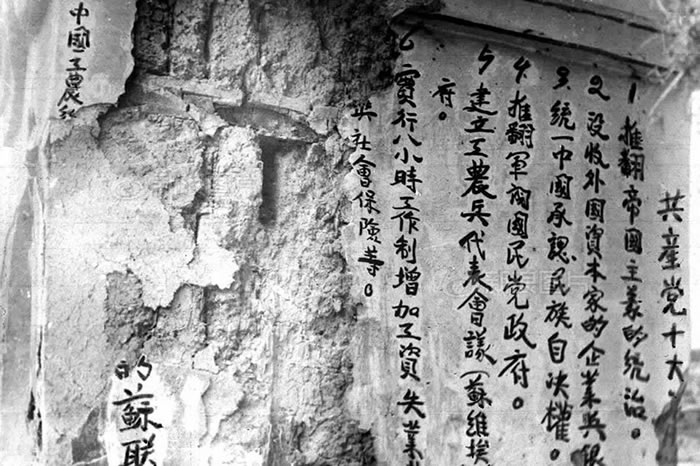 共産党十大
1 推翻帝國主義的统治。
2 没收外國資本家的企業與銀
3 统一中國承認民族自决權。
4 推翻軍閥國民党政府。
5 建立工農兵代表會議(蘇維埃
府。
6 實行八小時工作制增加工資失業
與社會保險等。
的蘇联
中國工農红